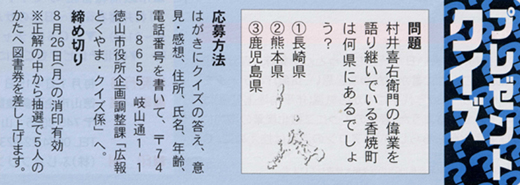 プレゼント
クイズ
問題
村井喜右衛門の偉業を
語り継いでいる香焼町
は何県にあるでしょ
う？
①長崎県
②熊本県
③鹿児島県
応募方法
はがきにクイズの答え、意
見・感想、住所、氏名、年齢、
電話番号を書いて、〒74
5-8655 岐山通1-1
徳山市役所企画調整課「広報
とくやま・クイズ係」へ。
締め切り
8月26日(月)の消印有効
※正解の中から抽選で5人の
かたへ図書券を差し上げます。